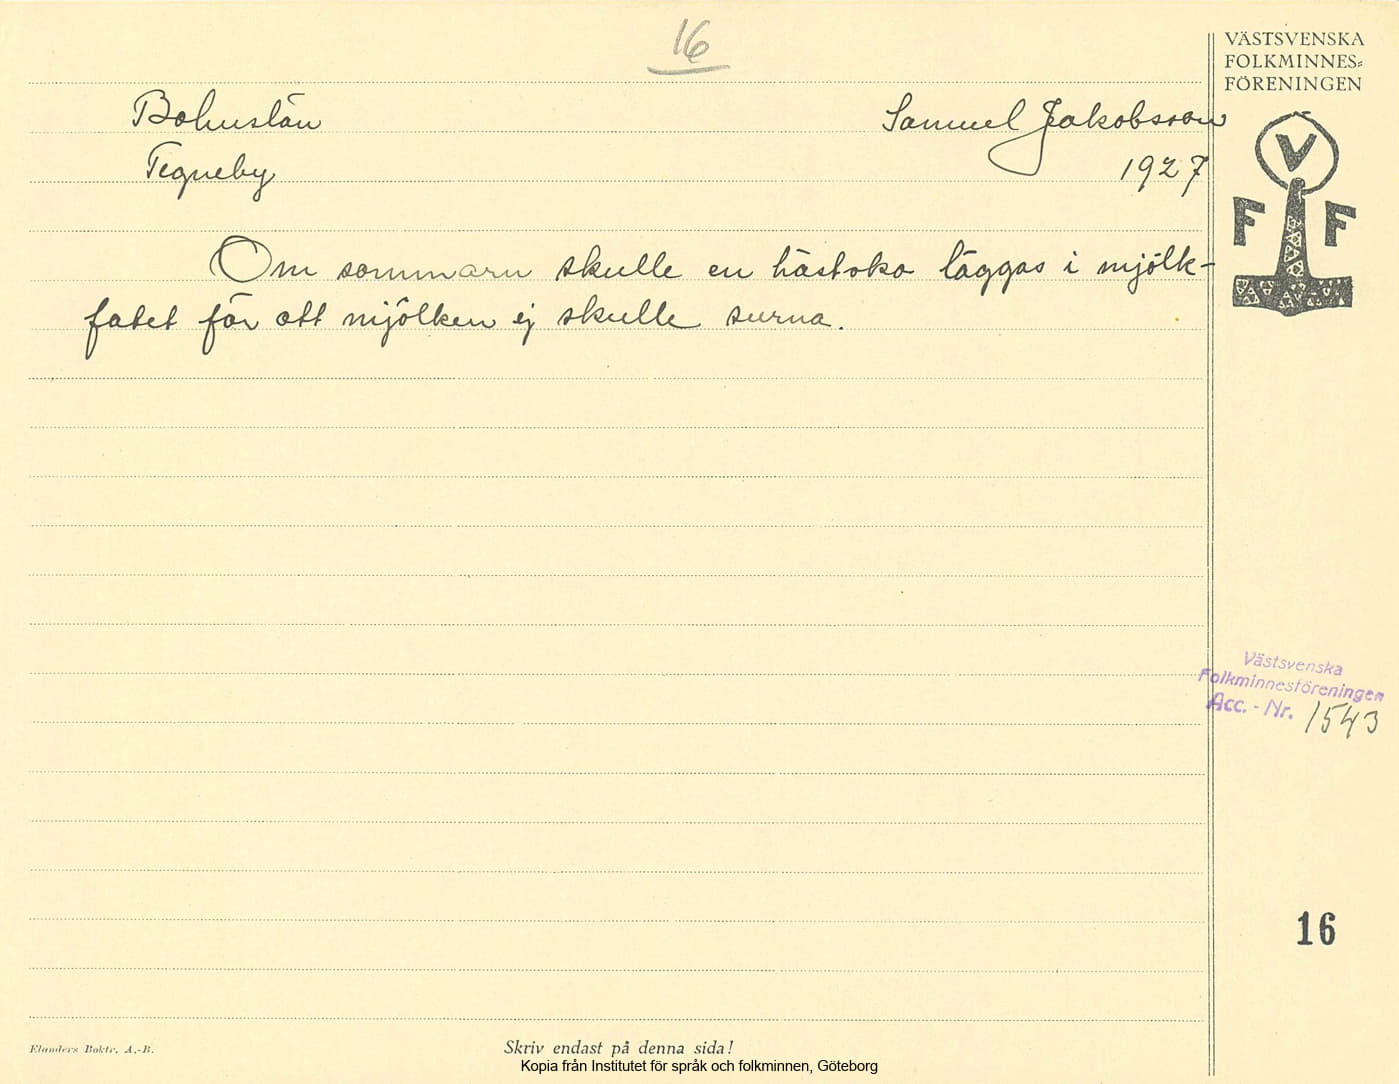 16
VÄSTSVENSKA
FOLKMINNES=
FÖRENINGEN
Bohuslän
Samuel Jakobsson
Tegneby
1927
V
F F
Om sommarn skulle en hästsko läggas i mjölk-
fatet för att mjölken ej skulle surna.
Västsvenska
Folkminnesföreningen
Acc. - Nr. 1543
16
Elanders Boktr. A.-B.
Skriv endast på denna sida!
Kopia från Institutet för språk och folkminnen, Göteborg